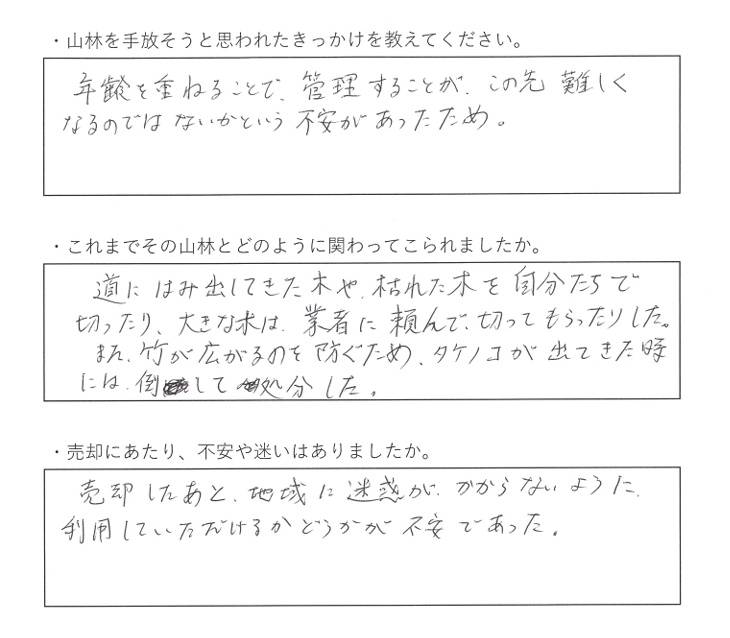 ・山林を手放そうと思われたきっかけを教えてください。
年齢を重ねることで、管理することが、この先 難しく
なるのでは ないかという 不安があったため。
・これまでその山林とどのように関わってこられましたか。
道に はみ出してきた木や、枯れた木を自分たちで
切ったり、大きな木は、業者に頼んで、切ってもらったりした。
また、竹が広がるのを防ぐため、タケノコが出てきた時
には、倒して 処分した。
・売却にあたり、不安や迷いはありましたか。
売却したあと、地域に迷惑が、かからないように、
利用していただけるかどうかが 不安であった。